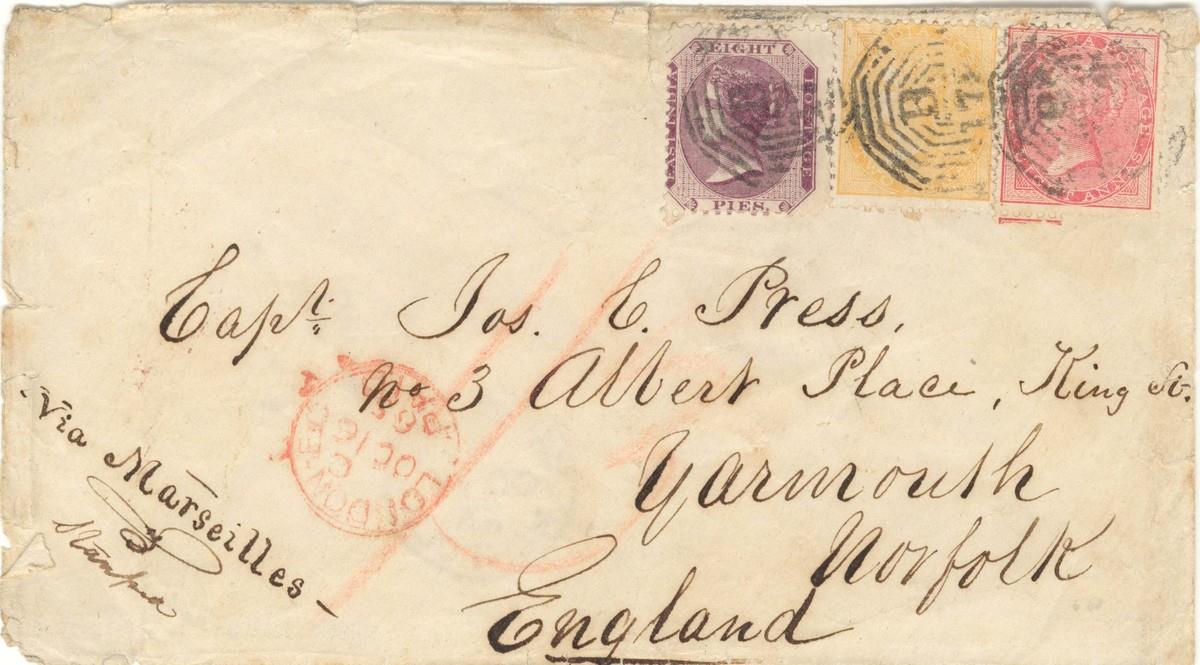 EIGHT
EAST INDIA
POSTAGE
PIES.
B
172
Capt. Jos. C. Press,
No 3 Albert Place, King St.
Yarmouth
Norfolk
England
Via Marseilles
LONDON E.C
C
OC 10
66